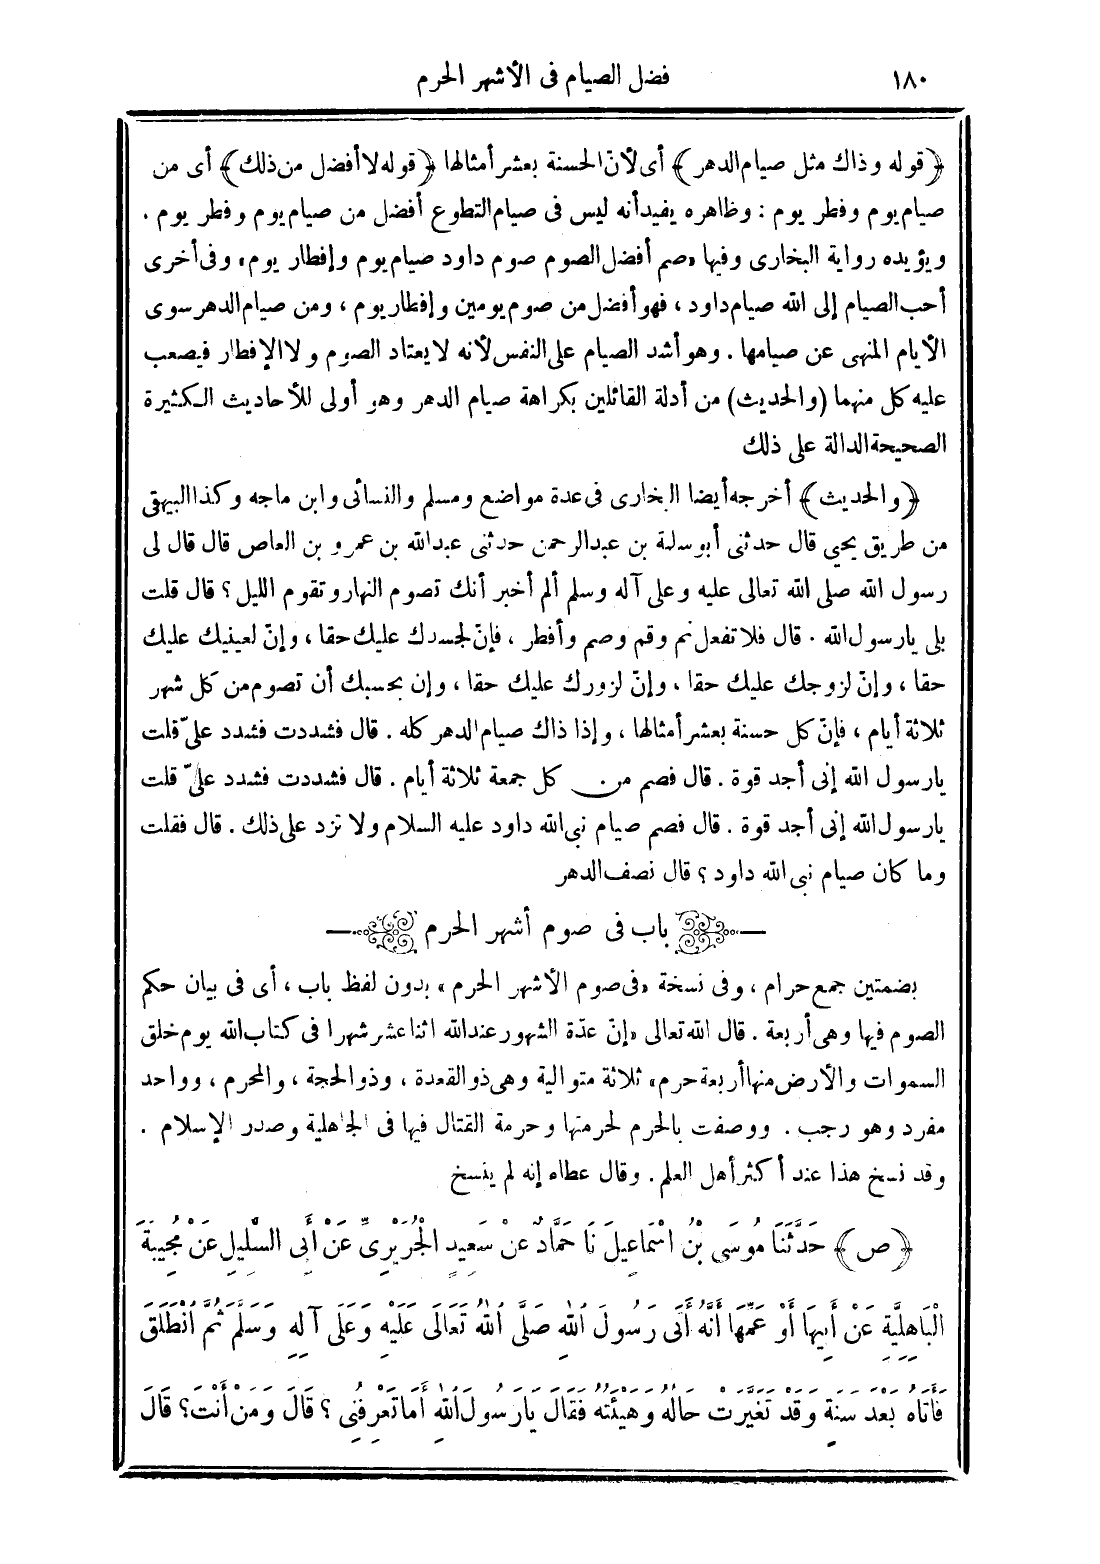 ١٨٠ فضل الصيام فى الأشهر الحرم
﴿قوله وذاك مثل صيام الدهر﴾ أى لأنّ الحسنة بعشر أمثالها ﴿قوله لا أفضل من ذلك﴾ أى من
صيام يوم وفطر يوم : وظاهره يفيد أنه ليس فى صيام التطوع أفضل من صيام يوم وفطر يوم .
ويؤيده رواية البخارى وفيها «صم أفضل الصوم صوم داود صيام يوم وإفطار يوم» وفى أخرى
أحب الصيام إلى الله صيام داود ، فهو أفضل من صوم يومين وإفطار يوم ، ومن صيام الدهر سوى
الأيام المنهى عن صيامها . وهو أشد الصيام على النفس لأنه لا يعتاد الصوم ولا الإفطار فيصعب
عليه كل منهما (والحديث) من أدلة القائلين بكراهة صيام الدهر وهو أولى للأحاديث الكثيرة
الصحيحة الدالة على ذلك
﴿والحديث﴾ أخرجه أيضا البخارى فى عدة مواضع ومسلم والنسائى وابن ماجه وكذا البيهقى
من طريق يحيى قال حدثنى أبو سلمة بن عبد الرحمن حدثنى عبد الله بن عمرو بن العاص قال قال لى
رسول الله صلى الله تعالى عليه وعلى آله وسلم ألم أخبر أنك تصوم النهار وتقوم الليل ؟ قال قلت
بلى يارسول الله . قال فلا تفعل نم وقم وصم وأفطر ، فإنّ لجسدك عليك حقا ، وإنّ لعينيك عليك
حقا ، وإنّ لزوجك عليك حقا ، وإنّ لزورك عليك حقا ، وإن بحسبك أن تصوم من كل شهر
ثلاثة أيام ، فإنّ كل حسنة بعشر أمثالها ، وإذا ذاك صيام الدهر كله . قال فشددت فشدد علىّ قلت
يارسول الله إنى أجد قوة . قال فصم من كل جمعة ثلاثة أيام . قال فشددت فشدد علىّ قلت
يارسول الله إنى أجد قوة . قال فصم صيام نبى الله داود عليه السلام ولا تزد على ذلك . قال فقلت
وما كان صيام نبى الله داود ؟ قال نصف الدهر
باب فى صوم أشهر الحرم
بضمتين جمع حرام ، وفى نسخة «فى صوم الأشهر الحرم» بدون لفظ باب ، أى فى بيان حكم
الصوم فيها وهى أربعة . قال الله تعالى «إنّ عدّة الشهور عند الله اثنا عشر شهرا فى كتاب الله يوم خلق
السموات والأرض منها أربعة حرم» ثلاثة متوالية وهى ذو القعدة ، وذو الحجة ، والمحرم ، وواحد
مفرد وهو رجب . ووصفت بالحرم لحرمتها وحرمة القتال فيها فى الجاهلية وصدر الإسلام .
وقد نسخ هذا عند أكثر أهل العلم . وقال عطاء إنه لم ينسخ
﴿ص﴾ حَدَّثَنَا مُوسَى بْنُ اسْمَاعِيلَ نَا حَمَّادٌ عَنْ سَعِيدٍ الْجُرَيْرِىِّ عَنْ أَبِى السَّلِيلِ عَنْ مُجِيبَةَ
الْبَاهِلِيَّةِ عَنْ أَبِيهَا أَوْ عَمِّهَا أَنَّهُ أَتَى رَسُولَ اللهِ صَلَّى اللهُ تَعَالَى عَلَيْهِ وَعَلَى آلِهِ وَسَلَّمَ ثُمَّ انْطَلَقَ
فَأَتَاهُ بَعْدَ سَنَةٍ وَقَدْ تَغَيَّرَتْ حَالُهُ وَهَيْئَتُهُ فَقَالَ يَارَسُولَ اللهِ أَمَا تَعْرِفُنِى ؟ قَالَ وَمَنْ أَنْتَ ؟ قَالَ